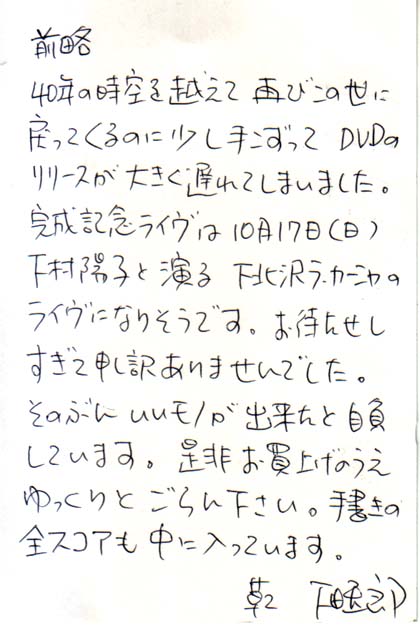 前略
40年の時空を越えて 再びこの世に
戻ってくるのに少し手こずって DVDの
リリースが大きく遅れてしまいました。
完成記念ライヴは10月17日(日)
下村陽子と演る 下北沢ラ・カーニャの
ライヴになりそうです。お待たせし
すぎて申し訳ありませんでした。
そのぶんいいモノが出来たと自負
しています。是非お買上げのうえ
ゆっくりとごらん下さい。手書きの
全スコアも中に入っています。
草々